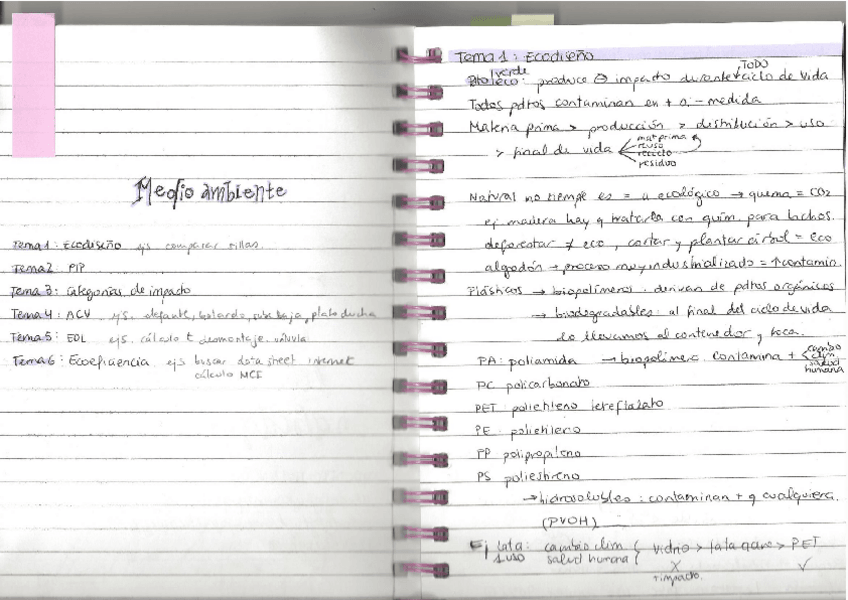 Medio ambiente
Tema 1: Ecodiseño ejs comparar sillas.
Tema 2: PIP
Tema 3: Categorías de impacto
Tema 4: ACV ejs. default, bastardo, sube baja, plato ducha
Tema 5: EOL ejs. cálculo t desmontaje. válvula
Tema 6: Ecoeficiencia. ejs buscar data sheet internet
cálculo MCI
Tema 1: Ecodiseño
verde
TODO
eco: produce ⊖ impacto durante ciclo de vida
Todos pdtos contaminan en + o - medida
Materia prima > producción > distribución > uso
> final de vida
mat prima
reuso
reciclo
residuo
Natural no siempre es = a ecológico → quema = CO2
ej madera hay q tratarla con quím. para bichos.
deforestar ≠ eco, cortar y plantar árbol = eco
algodón → proceso muy industrializado = ↑contamin.
Plásticos → biopolímeros. derivan de pdtos orgánicos
→ biodegradables: al final del ciclo de vida
lo llevamos al contenedor y
PA: poliamida → biopolímero. contamina +
cambio
clim
salud
humana
PC policarbonato
PET polietileno tereftalato
PE polietileno
PP polipropileno
PS poliestireno
→ hidrosolubles: contaminan + q cualquiera.
(PVOH)
Ej lata: cambio clim { vidrio > lata > PET
1 uso salud humana { X ✓
+ impacto.